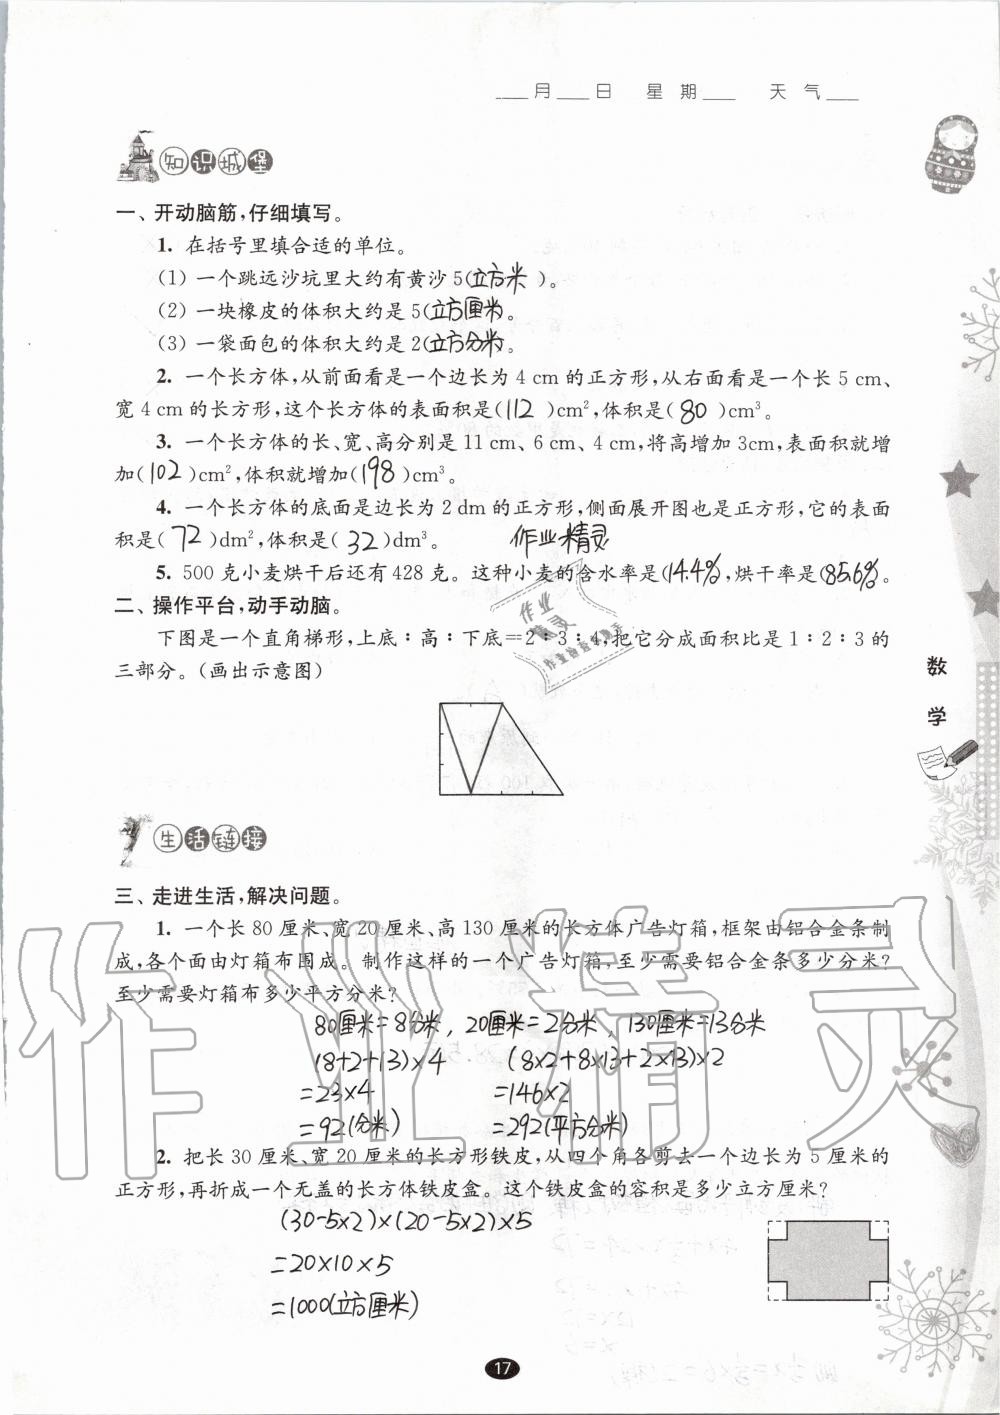 ___月___日 星期___ 天气___
知识城堡
一、开动脑筋,仔细填写。
1. 在括号里填合适的单位。
(1) 一个跳远沙坑里大约有黄沙 5(立方米 )。
(2) 一块橡皮的体积大约是 5(立方厘米)。
(3) 一袋面包的体积大约是 2(立方分米)。
2. 一个长方体,从前面看是一个边长为 4 cm 的正方形,从右面看是一个长 5 cm、
宽 4 cm 的长方形,这个长方体的表面积是( 112 )cm²,体积是( 80 )cm³。
3. 一个长方体的长、宽、高分别是 11 cm、6 cm、4 cm,将高增加 3cm,表面积就增
加( 102 )cm²,体积就增加( 198 )cm³。
4. 一个长方体的底面是边长为 2 dm 的正方形,侧面展开图也是正方形,它的表面
积是( 72 )dm²,体积是( 32 )dm³。 作业精灵
5. 500 克小麦烘干后还有 428 克。这种小麦的含水率是(14.4%),烘干率是(85.6%)。
二、操作平台,动手动脑。
作业
精灵
下图是一个直角梯形,上底∶高∶下底=2∶3∶4,把它分成面积比是 1∶2∶3 的
三部分。(画出示意图)
数
学
生活链接
三、走进生活,解决问题。
1. 一个长 80 厘米、宽 20 厘米、高 130 厘米的长方体广告灯箱,框架由铝合金条制
成,各个面由灯箱布围成。制作这样的一个广告灯箱,至少需要铝合金条多少分米?
至少需要灯箱布多少平方分米?
80厘米=8分米, 20厘米=2分米, 130厘米=13分米
(8+2+13)×4 (8×2+8×13+2×13)×2
=23×4 =146×2
=92(分米) =292(平方分米)
2. 把长 30 厘米、宽 20 厘米的长方形铁皮,从四个角各剪去一个边长为 5 厘米的
正方形,再折成一个无盖的长方体铁皮盒。这个铁皮盒的容积是多少立方厘米?
(30-5×2)×(20-5×2)×5
=20×10×5
=1000(立方厘米)
作业精灵
17